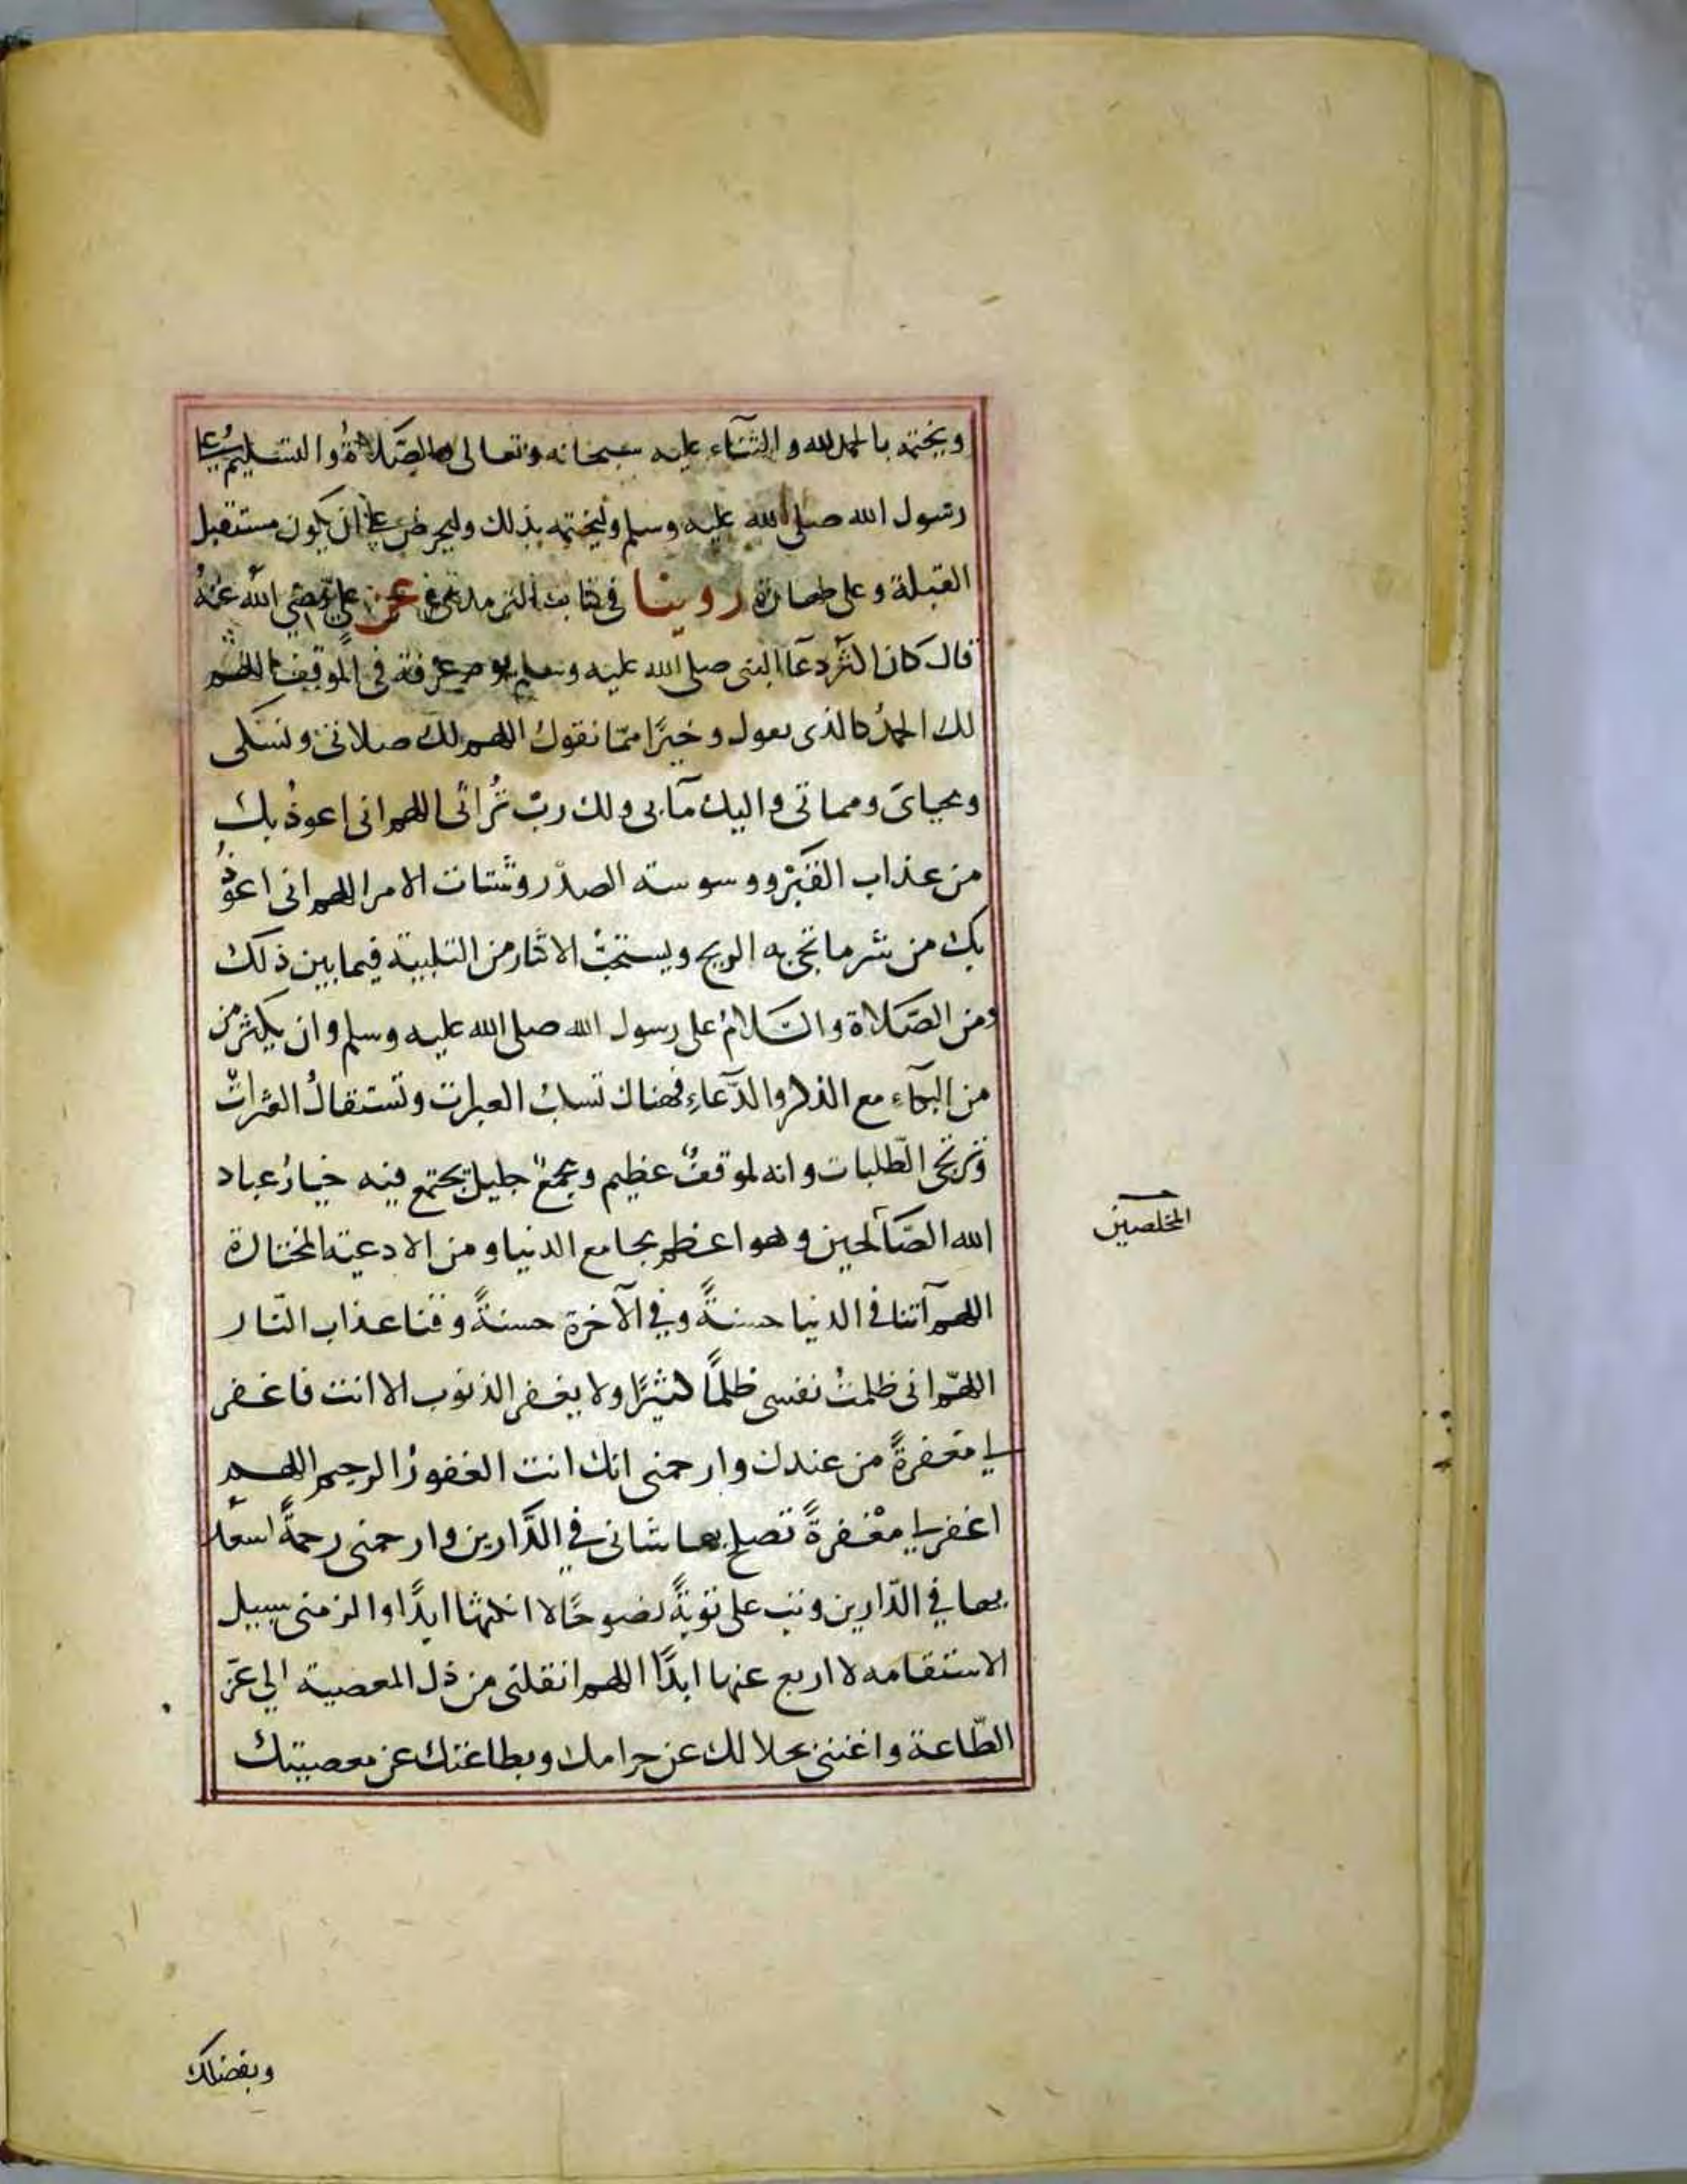 ويختمه بالحمد لله والثناء عليه سبحانه وتعالى والصلاة والتسليم على
رسول الله صلى الله عليه وسلم وليختمه بذلك وليحرص على ان يكون مستقبل
القبلة وعلى طهارة روينا في كتاب الترمذي عن علي رضي الله عنه
قال كان اكثر دعآ النبى صلى الله عليه وسلم يوم عرفة في الموقف اللهم
لك الحمدُ كالذى نقول وخيرًا ممّا نقول اللهم لك صلاتى ونسكى
ومحياىَ ومماتى واليك مآبى ولك ربّ تُراثى اللهم انى اعوذُ بك
من عذاب القبْر ووسوسته الصدْر وشتات الامر اللهم انى اعوذُ
بك من شر ما تجئ به الريح ويستحبُّ الاكثار من التلبية فيما بين ذلك
ومن الصّلاة والسّلامُ على رسول الله صلى الله عليه وسلم وان يكثر من
من البكآء مع الذكر والدّعاءِ فهناك تسكبُ العبرات وتستقالُ العثراتُ
وترتجى الطّلبات وانه لموقفٌ عظيم ومجمعٌ جليل يجتمع فيه خيارُ عباد
الله الصّالحين وهو اعظم مجامع الدنيا ومن الادعية المختارة
المخلصين
اللهم آتنا فى الدنيا حسنةً وفي الآخرة حسنةً وقنا عذاب النّار
اللهمّ انى ظلمتُ نفسى ظلمًا كثيرًا ولا يغفر الذنوب الا انت فاغفر
لي مغفرةً من عندك وارحمنى انك انت الغفورُ الرحيم اللهم
اغفر لي مغْفرةً تصلح بها شانى في الدَّارين وارحمنى رحمةً اسعد
بها في الدّارين وتب على توبةً نصوحًا لا انكثها ابدًا والزمنى سبيل
الاستقامه لا اريع عنها ابدًا اللهم انقلنى من ذل المعصية الي عزّ
الطّاعة واغننى بحلالك عن حرامك وبطاعتك عن معصيتك
وبفضلك